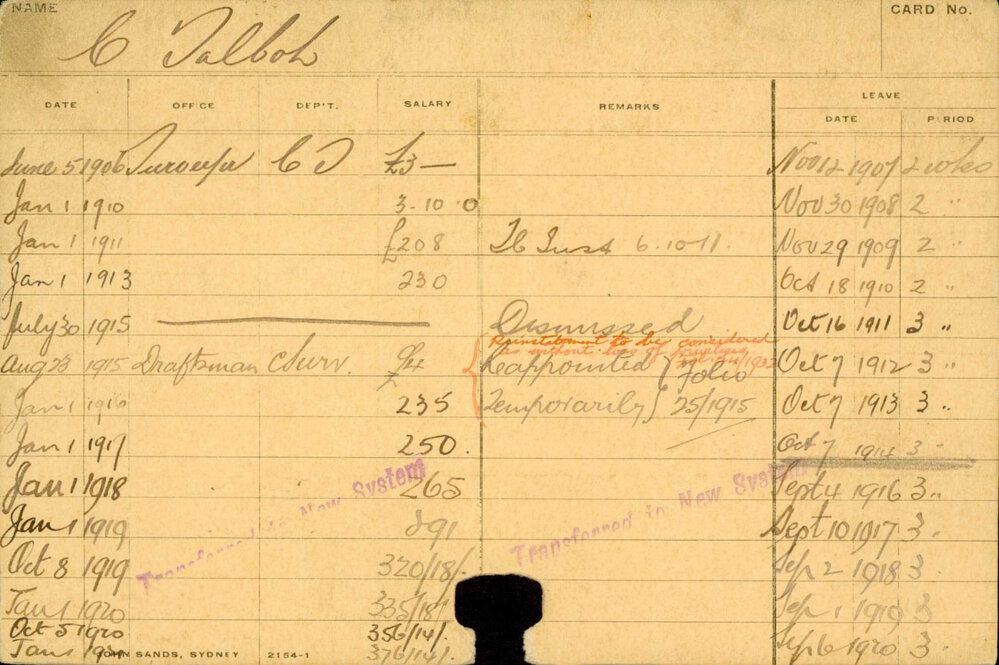 NAME
CARD No.
C Talbot
DATE OFFICE DEP'T. SALARY REMARKS LEAVE
DATE PERIOD
June 5 1906 Surveyor C S £3 — Nov 12 1907 2 wks
Jan 1 1910 3.10.0 Nov 30 1908 2 "
Jan 1 1911 £208 6.10.11. Nov 29 1909 2 "
Jan 1 1913 230 Oct 18 1910 2 "
July 30 1915 Dismissed Oct 16 1911 3 "
Reinstatement to be considered
as without loss of privileges
Aug 23 1915 Draftsman C Surv. £4 Reappointed Folio Oct 7 1912 3 "
Jan 1 1916 235 Temporarily 25/1915 Oct 7 1913 3 "
Jan 1 1917 250. Oct 7 1914 3 "
Jan 1 1918 265 Sept 4 1916 3 "
Transferred to New System
Transferred to New System
Jan 1 1919 291 Sept 10 1917 3 "
Oct 8 1919 320/18/- Sep 2 1918 3
Jan 1 1920 335/18/- Sep 1 1919 3
Oct 5 1920 356/14/-
Jan 1 376/14/- Sep 6 1920 3
JOHN SANDS, SYDNEY 2154-1